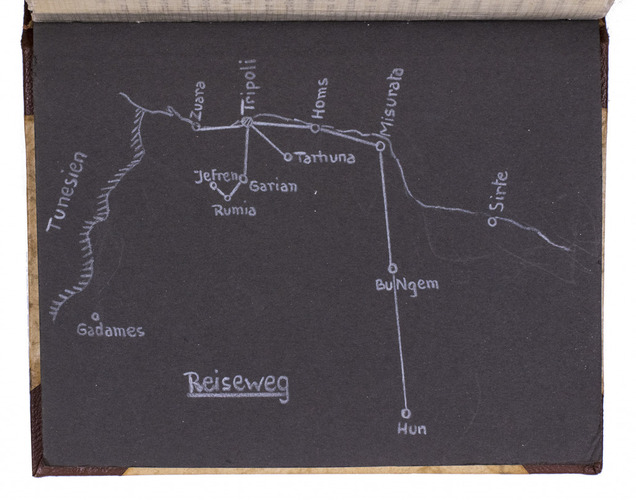 Zuara
Tripoli
Homs
Misurata
Tarhuna
Jefren
Garian
Rumia
Tunesien
Sirte
Bu Ngem
Gadames
Reiseweg
Hun